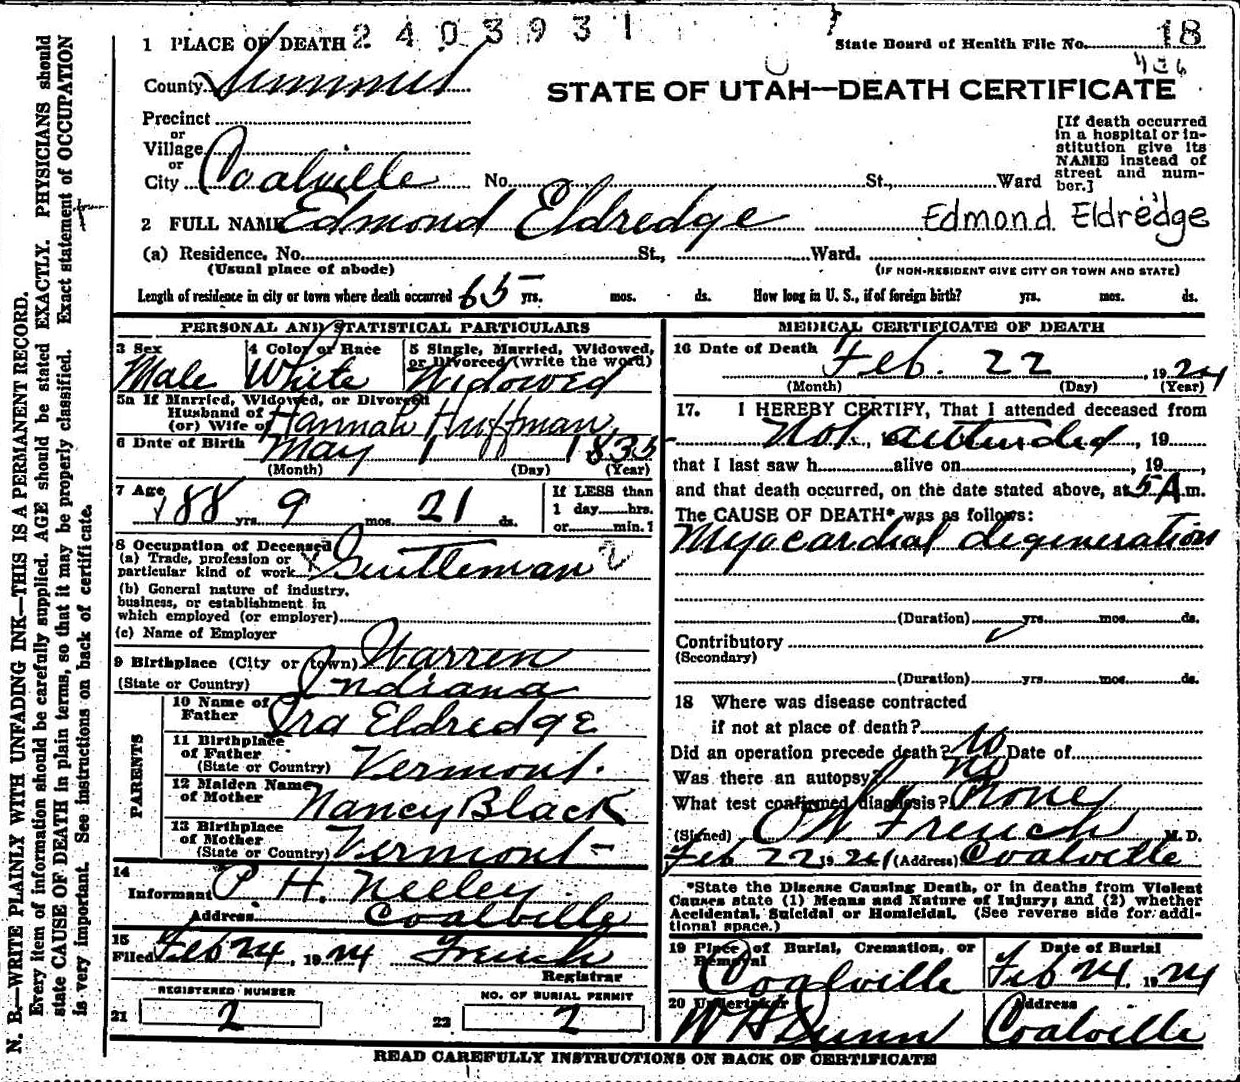 N. B.—WRITE PLAINLY WITH UNFADING INK—THIS IS A PERMANENT RECORD.
Every item of information should be carefully supplied. AGE should be stated EXACTLY. PHYSICIANS should
state CAUSE OF DEATH in plain terms, so that it may be properly classified. Exact statement of OCCUPATION
is very important. See instructions on back of certificate.
2403931
1 PLACE OF DEATH
State Board of Health File No. 18
County Summit
STATE OF UTAH—DEATH CERTIFICATE
Precinct
or
Village
or
City Coalville No. St., Ward
[If death occurred
in a hospital or in-
stitution give its
NAME instead of
street and num-
ber.]
2 FULL NAME Edmond Eldredge Edmond Eldredge
(a) Residence. No. St., Ward.
(Usual place of abode) (IF NON-RESIDENT GIVE CITY OR TOWN AND STATE)
Length of residence in city or town where death occurred 65 yrs. mos. ds. How long in U. S., if of foreign birth? yrs. mos. ds.
PERSONAL AND STATISTICAL PARTICULARS
3 Sex 4 Color or Race 5 Single, Married, Widowed,
or Divorced (write the word)
Male White Widowed
5a If Married, Widowed, or Divorced
Husband of
(or) Wife of Hannah Huffman
6 Date of Birth May 1 1835
(Month) (Day) (Year)
7 Age
88 yrs. 9 mos. 21 ds.
If LESS than
1 day hrs.
or min.?
8 Occupation of Deceased
(a) Trade, profession or
particular kind of work Gentleman
(b) General nature of industry,
business, or establishment in
which employed (or employer)
(c) Name of Employer
9 Birthplace (City or town) Warren
(State or Country) Indiana
PARENTS
10 Name of
Father Ira Eldredge
11 Birthplace
of Father
(State or Country) Vermont.
12 Maiden Name
of Mother Nancy Black
13 Birthplace
of Mother
(State or Country) Vermont-
14
Informant P. H. Neeley
Address Coalville
15
Filed Feb 24, 1924 French
Registrar
REGISTERED NUMBER NO. OF BURIAL PERMIT
21 2 22 2
MEDICAL CERTIFICATE OF DEATH
16 Date of Death Feb. 22, 1924
(Month) (Day) (Year)
17. I HEREBY CERTIFY, That I attended deceased from
Not attended, 19
that I last saw h alive on , 19 ,
and that death occurred, on the date stated above, at 5 A.m.
The CAUSE OF DEATH* was as follows:
Myocardial degeneration
(Duration) yrs. mos. ds.
Contributory
(Secondary)
(Duration) yrs. mos. ds.
18 Where was disease contracted
if not at place of death?
Did an operation precede death? No Date of
Was there an autopsy? no
What test confirmed diagnosis? None
(Signed) French M. D.
Feb 22 1924 (Address) Coalville
*State the Disease Causing Death, or in deaths from Violent
Causes state (1) Means and Nature of Injury; and (2) whether
Accidental, Suicidal or Homicidal. (See reverse side for addi-
tional space.)
19 Place of Burial, Cremation, or
Removal
Coalville
Date of Burial
Feb 24, 1924
20 Undertaker Address
W H Dunn Coalville
READ CAREFULLY INSTRUCTIONS ON BACK OF CERTIFICATE